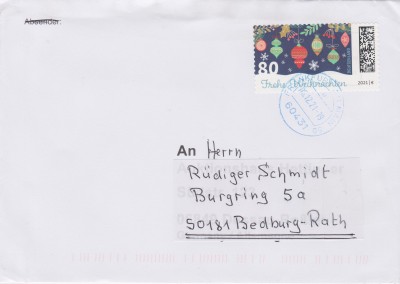 Absender:
80
Frohe Weihnachten
2021
60431
An Herrn
Rüdiger Schmidt
Burgring 5a
50181 Bedburg-Rath